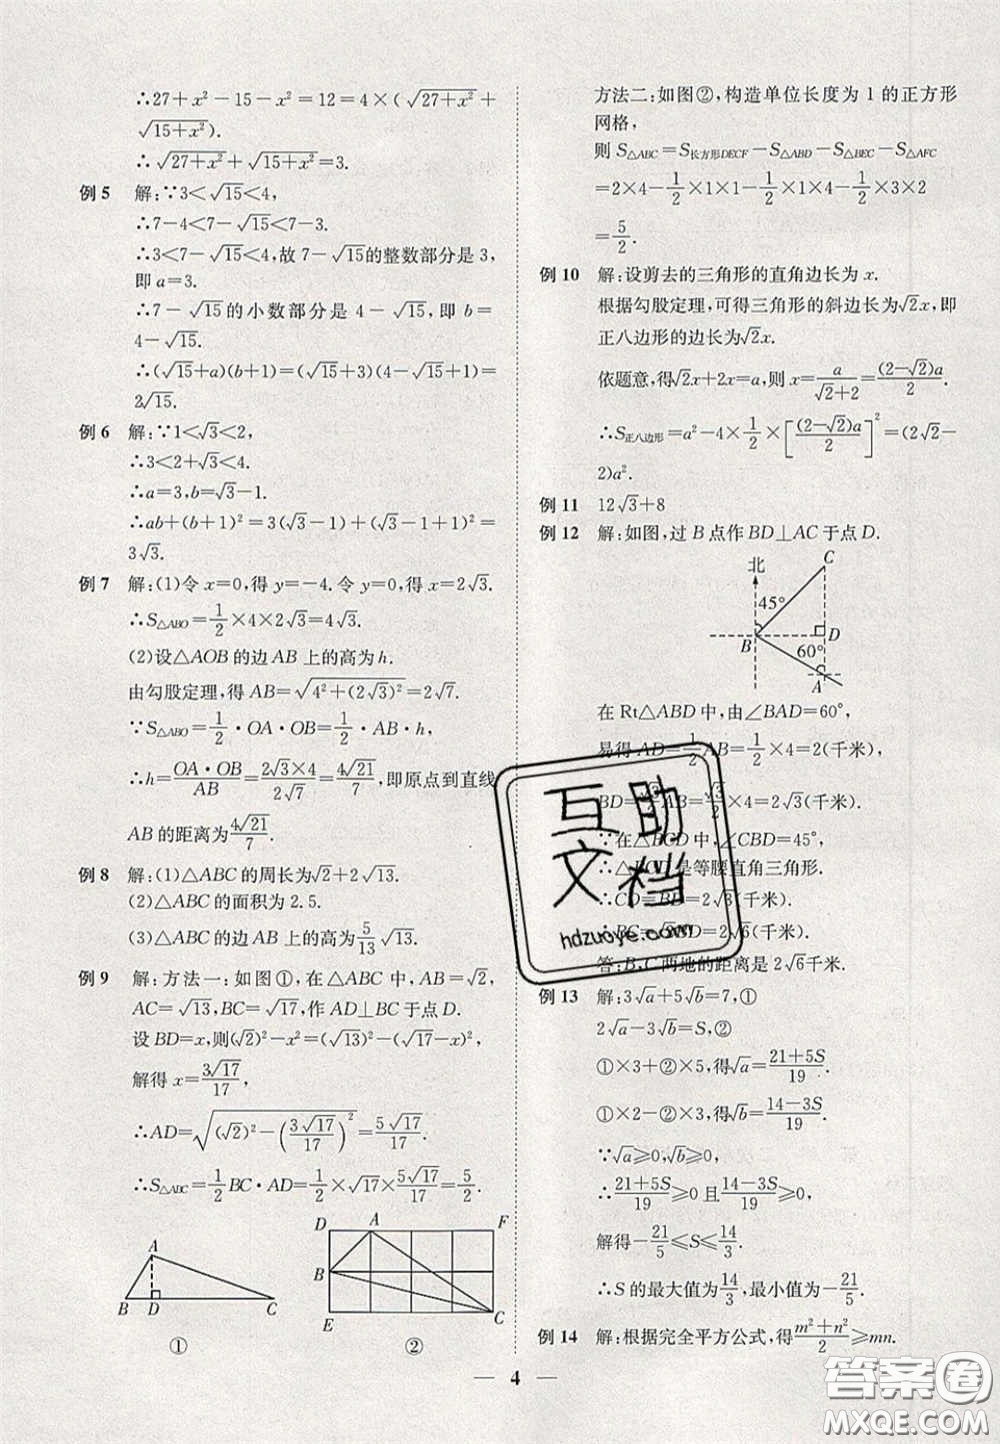 ∴27+x²-15-x²=12=4×(√(27+x²)+
√(15+x²)).
∴√(27+x²)+√(15+x²)=3.
例 5 解:∵3<√15<4,
∴7-4<7-√15<7-3.
∴3<7-√15<4,故 7-√15的整数部分是 3,
即 a=3.
∴7-√15的小数部分是 4-√15,即 b=
4-√15.
∴(√15+a)(b+1)=(√15+3)(4-√15+1)=
2√15.
例 6 解:∵1<√3<2,
∴3<2+√3<4.
∴a=3,b=√3-1.
∴ab+(b+1)²=3(√3-1)+(√3-1+1)²=
3√3.
例 7 解:(1)令 x=0,得 y=-4.令 y=0,得 x=2√3.
∴S△ABO=1/2×4×2√3=4√3.
(2)设△AOB的边 AB 上的高为h.
由勾股定理,得 AB=√(4²+(2√3)²)=2√7.
∵S△ABO=1/2·OA·OB=1/2·AB·h,
∴h=OA·OB/AB=2√3×4/2√7=4√21/7,即原点到直线
AB 的距离为4√21/7.
例 8 解:(1)△ABC的周长为√2+2√13.
(2)△ABC的面积为 2.5.
(3)△ABC的边上的高为5/13√13.
例 9 解:方法一:如图①,在△ABC 中,AB=√2,
AC=√13,BC=√17,作 AD⊥BC 于点 D.
设 BD=x,则(√2)²-x²=(√13)²-(√17-x)²,
解得 x=3√17/17,
∴AD=√((√2)²-(3√17/17)²)=5√17/17.
∴S△ABC=1/2BC·AD=1/2×√17×5√17/17=5/2.
A
B D C
①
D A F
B
E C
②
方法二:如图②,构造单位长度为 1 的正方形
网格,
则 S△ABC=S长方形DECF-S△ABD-S△BEC-S△AFC
=2×4-1/2×1×1-1/2×4×1-1/2×3×2
=5/2.
例 10 解:设剪去的三角形的直角边长为 x.
根据勾股定理,可得三角形的斜边长为√2x,即
正八边形的边长为√2x.
依题意,得√2x+2x=a,则 x=a/(√2+2)=(2-√2)a/2.
∴S正八边形=a²-4×1/2×[(2-√2)a/2]²=(2√2-
2)a².
例 11 12√3+8
例 12 解:如图,过 B 点作 BD⊥AC 于点 D.
北
C
45°
B
D
60°
A
在 Rt△ABD 中,由∠BAD=60°,
易得 AD=1/2AB=1/2×4=2(千米),
BD=√3/2AB=√3/2×4=2√3(千米).
∵在△BCD 中,∠CBD=45°,
∴△BCD 是等腰直角三角形.
∴CD=BD=2√3(千米).
∴BC=√2BD=2√6(千米).
答:B,C 两地的距离是 2√6千米.
例 13 解:3√a+5√b=7,①
2√a-3√b=S,②
①×3+②×5,得√a=(21+5S)/19.
①×2-②×3,得√b=(14-3S)/19.
∵√a≥0,√b≥0,
∴(21+5S)/19≥0 且(14-3S)/19≥0.
解得-21/5≤S≤14/3.
∴S 的最大值为14/3,最小值为-21/5.
例 14 解:根据完全平方公式,得(m²+n²)/2≥mn.
4
互助
文档
hdzuoye.com
答案圈
MXQE.COM